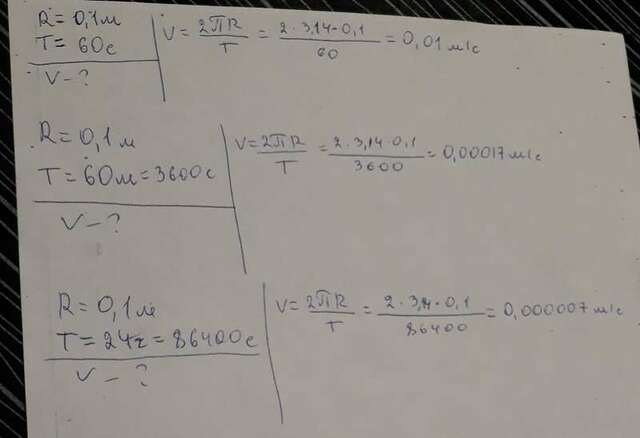 R = 0,1м
T = 60с
V - ?
V = 2πR/T = 2 · 3,14 · 0,1/60 = 0,01 м/с
R = 0,1 м
T = 60м = 3600с
V - ?
V = 2πR/T = 2 · 3,14 · 0,1/3600 = 0,00017 м/с
R = 0,1м
T = 24ч = 86400с
V - ?
V = 2πR/T = 2 · 3,14 · 0,1/86400 = 0,000007 м/с